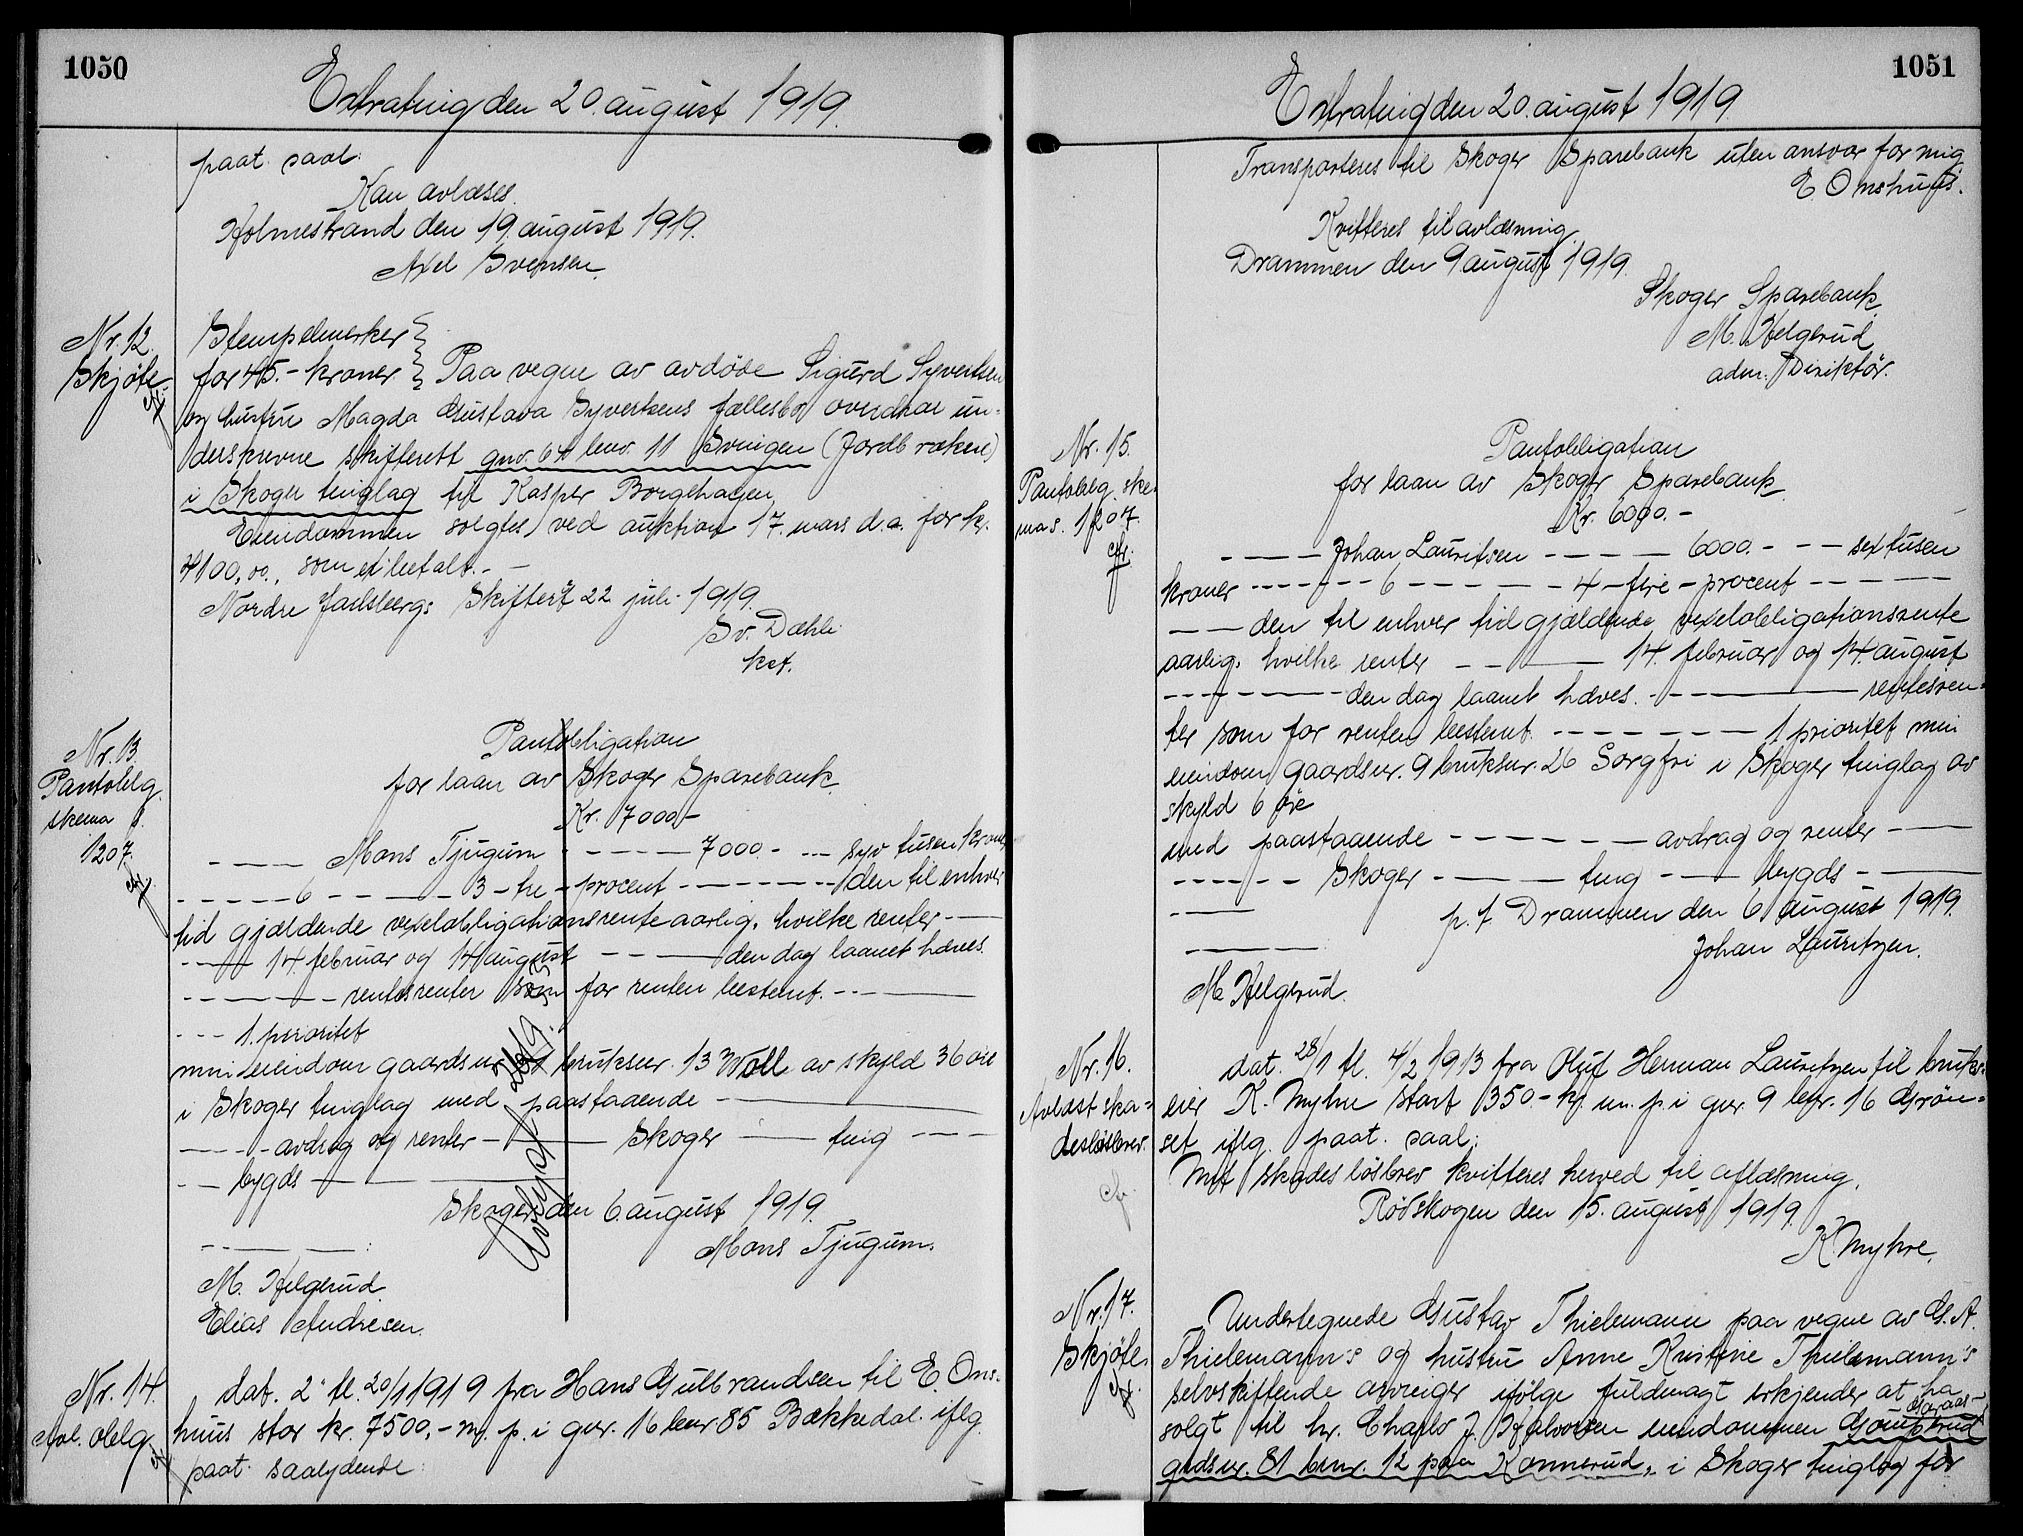 1050
Extrating den 20. august 1919.
paat. saal:
Kan avlæses.
Holmestrand den 19. august 1919.
Axel Svensen.
Nr. 12.
Skjøte.
cfr.
Stempelmerker
for 45.- kroner. Paa vegne av avdøde Sigurd Syvertsen
og hustru Magda Gustava Syvertsens fællesbo overdrar un-
derskrevne skifterett gnr. 64 bnr. 11 Svingen (Jordbræken)
i Skoger tinglag til Kasper Borgehagen.
Eiendommen solgtes ved auktion 17. mars d.a. for kr.
4100,00, som er betalt. - -
Nordre Jarlsbergs Skifteret 22 juli 1919.
Sv. Dæhli.
kst.
Nr. 13.
Pantoblg.
skema s.
1207.
cfr.
Pantobligation
for laan av Skoger Sparebank.
Kr. 7000.-
- - - Mons Tjugum - - - - - 7000.- - - syv tusen kroner
- - - - - 6 - - - - 3 - tre - procent - - - - - - - den til enhver
tid gjældende vexelobligationsrente aarlig, hvilke renter - -
- - - 14. februar og 14 august - - - - den dag laanet hæves.
- - - - - - rentesrenter som for renten bestemt. - - - -
- - - 1. prioritet
min eiendom gaardsnr. bruksnr. 13 Woll av skyld 36 øre
i Skoger tinglag med paastaaende - - -
- - - - avdrag og renter - - - Skoger - - - ting - - - -
- - bygds - - -
Skoger den 6. august 1919.
- - - - - :
Mons Tjugum.
M. Helgerud.
Elias Andresen.
Avlyst
Nr. 14.
Avl. oblg.
cfr.
dat. 2' tl. 20/1 1919 fra Hans Gulbrandsen til E. Ons-
huus stor kr. 7500,- m. p. i gnr. 16 bnr. 85 Bækkedal iflg.
paat. saalydende:
1051
Extrating den 20. august 1919.
Transporteres til Skoger Sparebank uten ansvar for mig
E. Onshuus.
Kvitteres til avlæsning.
Drammen den 9 august 1919.
Skoger Sparebank.
M. Helgerud
adm. Direktør.
Nr. 15.
Pantoblg. ske-
ma s. 1207.
cfr.
Pantobligation
for laan av Skoger Sparebank.
Kr. 6000.-
- - - - Johan Lauritsen - - - - - 6000.- - - sextusen
kroner - - - - - - 6 - - - - - - 4 - fire - procent - - - - -
- - - den til enhver tid gjældende vexelobligationsrente
aarlig, hvilke renter - - - - 14. februar og 14. august
- - - - - - - den dag laanet hæves. - - - - - rentesren-
ter som for renten bestemt. - - - - - - - 1 prioritet min
eiendom gaardsnr. 9 bruksnr. 26 Sorgfri i Skoger tinglag av
skyld 6 øre
med paastaaende - - - - - - avdrag og renter - - -
- - - - - - Skoger - - - - ting - - - bygds - - - -
- - - p.t. Drammen den 6 august 1919.
- - - - - Johan Lauritzen.
M. Helgerud.
Nr. 16.
Avlæst ska-
desløsbrev.
cfr.
dat. 28/1 tl. 4/2 1913 fra Oluf Herman Lauritzen til bruks-
eier K. Myhre stort 350.- kr. m. p. i gnr. 9 bnr. 16 Grøn-
set iflg. paat. saal:
Mit skadesløsbrev kvitteres herved til aflæsning.
Rødskogen den 15. august 1919.
K Myhre.
Nr. 17.
Skjøte.
cfr.
Undertegnede Gustav Thielemann paa vegne av G. A.
Thielemann's og hustru Anne Kristine Thielemann's
selvskiftende arvinger ifølge fuldmagt erkjender at ha
solgt til hr. Charls J. Halvorsen eiendommen
gdsnr. 81 bnr. 12 paa Konnerud, i Skoger tinglag for